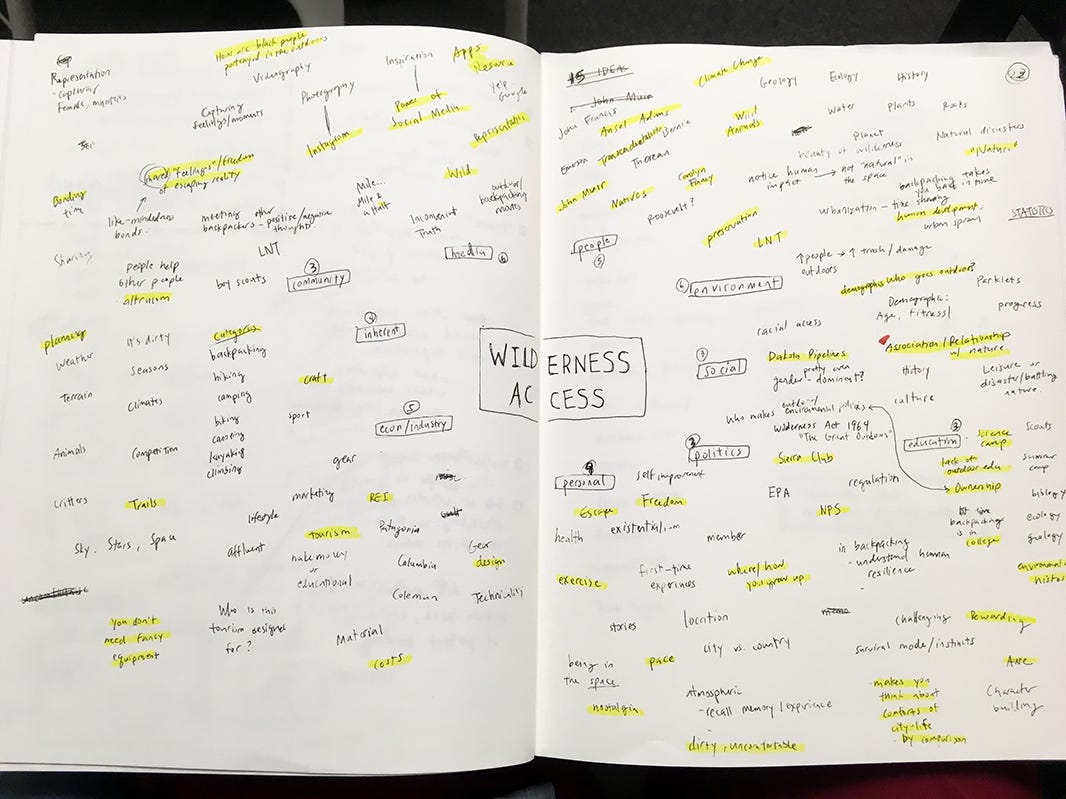 How are black people
portrayed in the outdoors
Representation
- capturing
Female, minorities
Videography
Photography
Inspiration
Apps
Resource
Yelp
Google
Capturing
feelings/moments
Instagram
Power of
Social Media
Representation
shared "feelings"/freedom
of escaping reality
Bonding
time
like-mindedness
bonds.
meeting other
backpackers - positive/negative
thoughts
Mile...
Mile &
a Half
Wild
outdoor/
backpacking
movies
Inconvenient
Truth
media
6
Sharing
LNT
People help
other people
- altruism
boy scouts
3
community
planning
weather
It's dirty
categories
backpacking
4
inherent
Terrain
seasons
hiking
camping
craft
Climates
biking
canoeing
kayaking
climbing
sport
5
econ/industry
Animals
Competition
gear
Critters
Trails
marketing
REI
lifestyle
tourism
Patagonia
Sky, Stars, Space
affluent
make money
or
educational
Columbia
Gear
design
Coleman
Technicality
you don't
need fancy
equipment
Who is this
tourism designed
for?
Material
costs
WILDERNESS
ACCESS
15 IDEAS
1. John Muir
John Francis
Ansel Adams
Bernie
Emerson
Transcendentalists
Thoreau
John Muir
Natives
Carolyn
Finney
Roosevelt?
people
5
Climate Change
Geology
Ecology
History
Wild
Animals
Water
Plants
Rocks
Planet
Natural disasters
beauty of wilderness
"Nature"
notice human
impact
not "natural" in
the space
backpacking takes
you back in time
urbanization - time sharing
human development,
urban sprawl
STATISTICS
preservation
LNT
↑people → ↑ trash / damage
outdoors
6
environment
demographics who goes outdoors?
Parklets
Demographic:
Age, Fitness/
progress
racial access
Association/Relationship
w/ nature
3
social
Dakota Pipelines
pretty even
gender - dominent?
History
Leisure or
disaster/battling
nature.
culture
who makes outdoor/
environmental policies
Wilderness Act 1964
"The Great Outdoors"
politics
Sierra Club
EPA
regulation
NPS
3
education
science
camp
Scouts
lack of
outdoor edu
summer
camp
Ownership
biology
backpacking
is in
college
ecology
geology
environmental
history
personal
self improvement
Escape
Freedom
health
existentialism
member
exercise
first-time
experiences
where/how
you grow up
in backpacking
- understand human
resilience.
stories
location
challenging
Rewarding
city vs. country
survival mode/instincts
being in
the space
pace
Awe
nostalgia
atmospheric
- recall memory / experience
- makes you
think about
comforts of
city-life
- by comparison
Character
building
dirty, uncomfortable